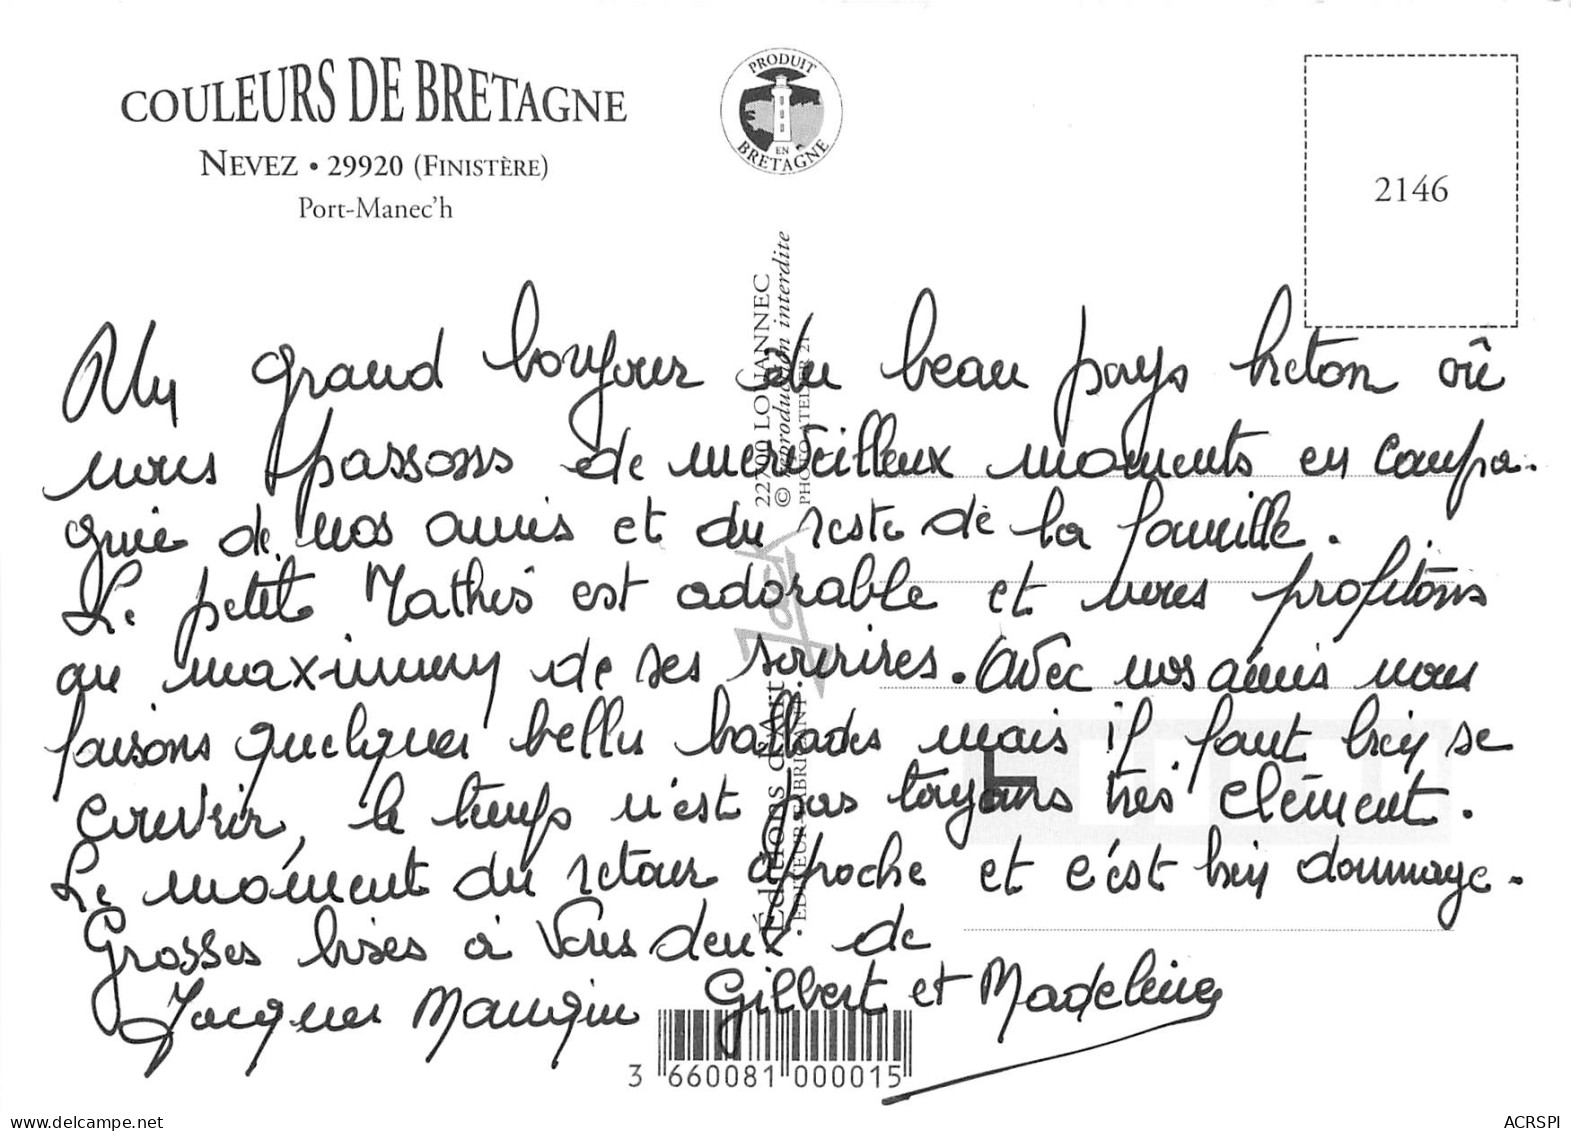 COULEURS DE BRETAGNE
NEVEZ • 29920 (FINISTÈRE)
Port-Manec'h
PRODUIT
EN
BRETAGNE
2146
Un grand bonjour du beau pays breton où
nous passons de merveilleux moments en compa-
gnie de nos amis et du reste de la famille.
Le petit Mathis est adorable et nous profitons
au maximum de ses sourires. Avec nos amis nous
faisons quelques belles ballades mais il faut bien se
couvrir, le temps n'est pas toujours très clément.
Le moment du retour approche et c'est bien dommage.
Grosses bises à vous deux de
Jacques Mangin Gilbert et Madeleine
22700 LOUANNEC
© Reproduction interdite
PHOTO ATELIER 21
Jack
Éditions d'Art
ÉDITEUR FABRICANT
3 660081 000015
delcampe.net
ACRSPI